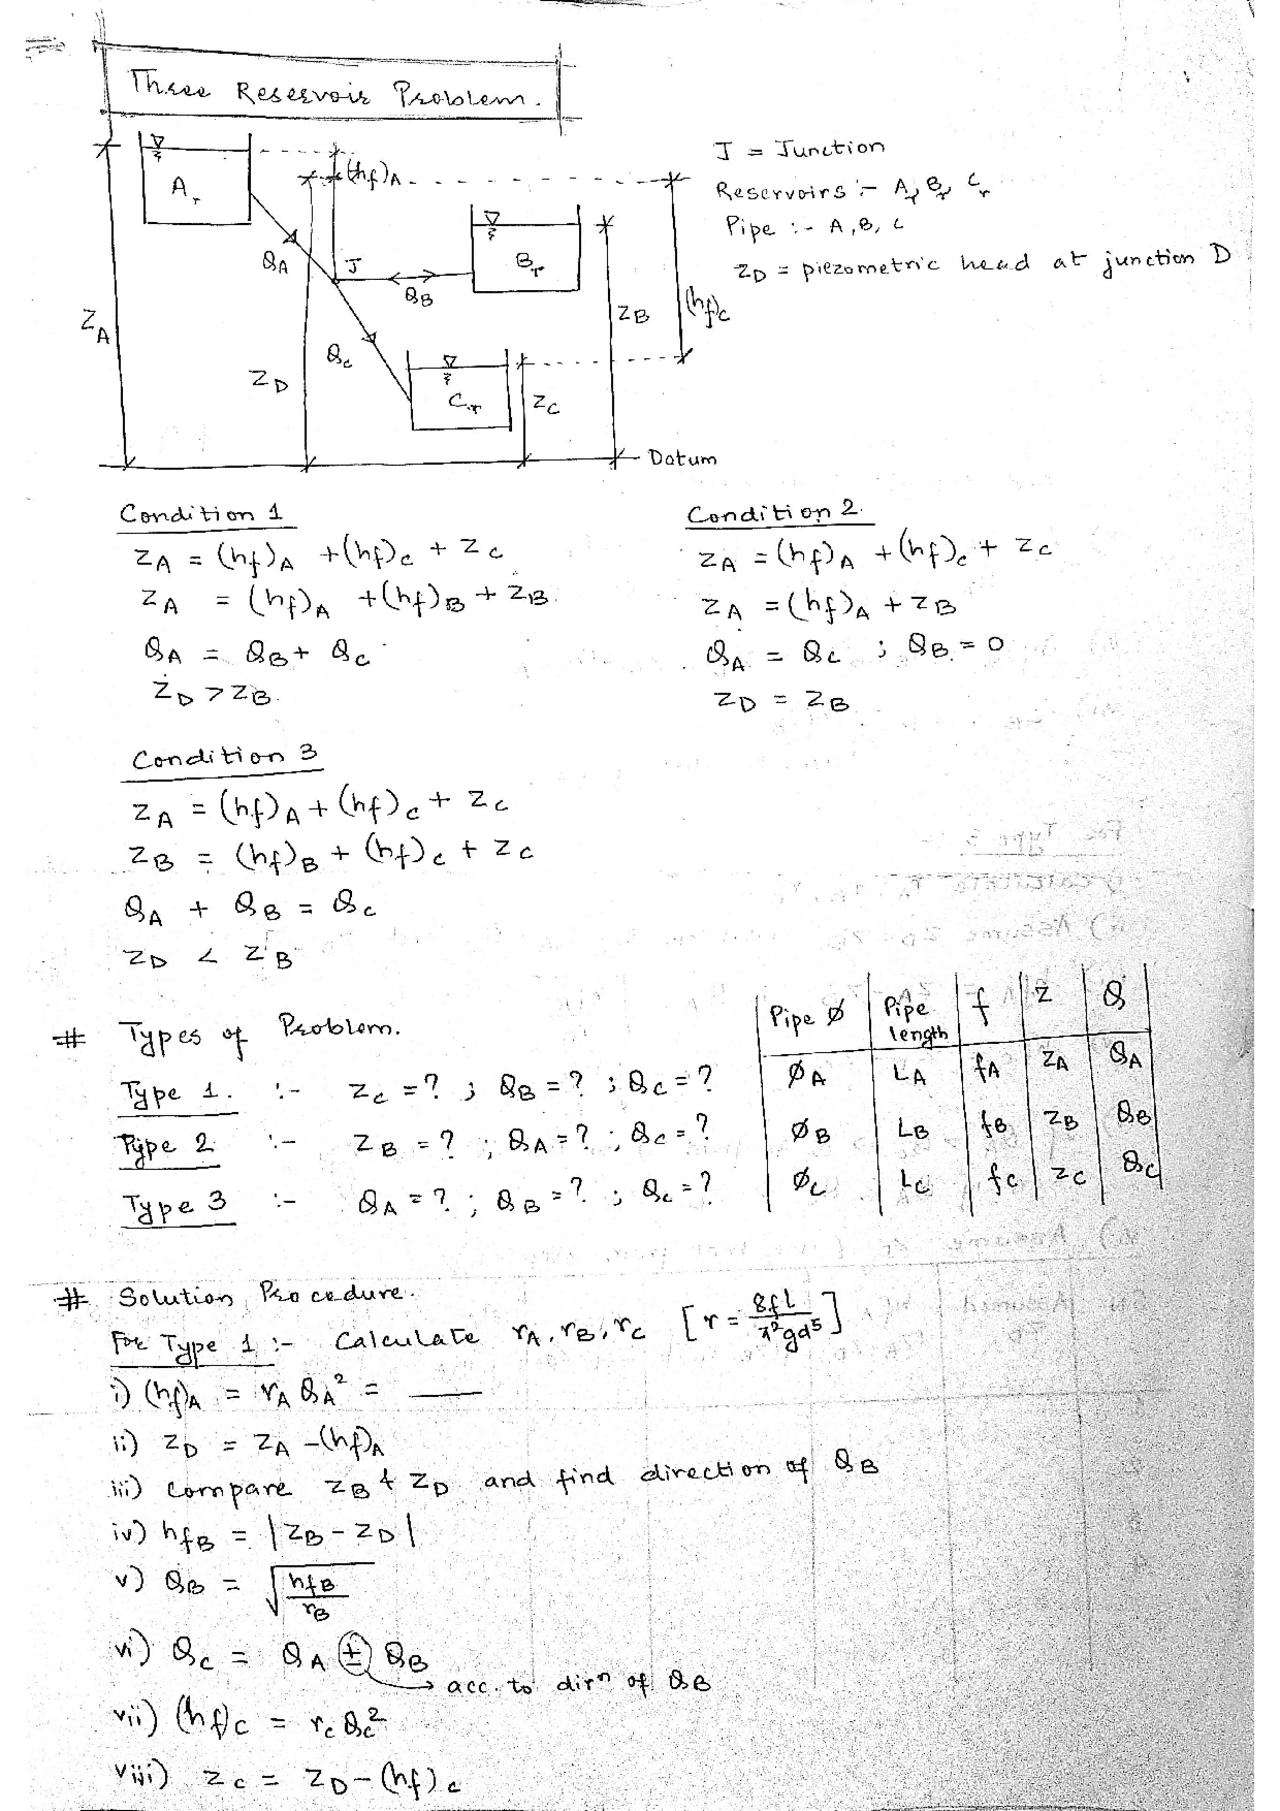 Three Reservoir Problem.
J = Junction
Reservoirs :- Ar, Br, Cr
Pipe :- A, B, C
ZD = piezometric head at junction D
Ar
(hf)A
QA
J
QB
Br
ZA
ZD
Qc
Cr
ZC
ZB
(hf)C
Datum
Condition 1
ZA = (hf)A + (hf)c + Zc
ZA = (hf)A + (hf)B + ZB
QA = QB + Qc
ZD > ZB.
Condition 2.
ZA = (hf)A + (hf)c + Zc
ZA = (hf)A + ZB
QA = Qc ; QB = 0
ZD = ZB
Condition 3
ZA = (hf)A + (hf)c + Zc
ZB = (hf)B + (hf)c + Zc
QA + QB = Qc
ZD < ZB
# Types of Problem.
Type 1. :- Zc = ? ; QB = ? ; Qc = ?
Pype 2 :- ZB = ? ; QA = ? ; Qc = ?
Type 3 :- QA = ? ; QB = ? ; Qc = ?
Pipe Ø | Pipe length | f | Z | Q
ØA | LA | fA | ZA | QA
ØB | LB | fB | ZB | QB
ØC | LC | fC | ZC | QC
# Solution Procedure.
For Type 1 :- Calculate rA, rB, rc [r = 8fL / π²gd⁵]
i) (hf)A = rA QA² = ____
ii) ZD = ZA - (hf)A
iii) compare ZB & ZD and find direction of QB
iv) hfB = |ZB - ZD|
v) QB = √(hfB / rB)
vi) Qc = QA ± QB
→ acc. to dirⁿ of QB
vii) (hf)c = rc Qc²
viii) Zc = ZD - (hf)c